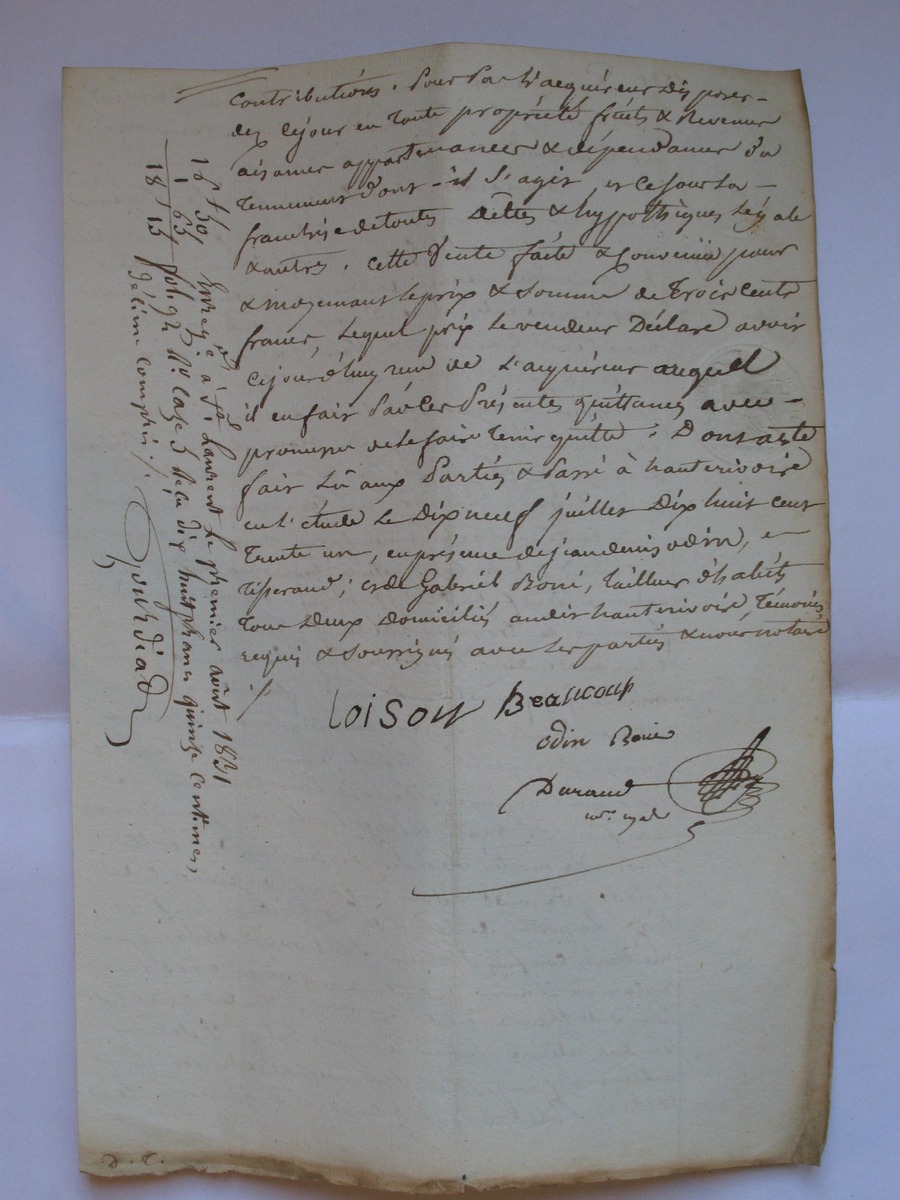 contributions. Pour par l'acquéreur disposer
dez cejour en toute propriété fruits & Revenus
aisances appartenances & dépendances du
tennement dont-il s'agit, et ce sous la
franchise de toutes dêttes & hyppothèques légale
& autres. Cette Vente faite & Convenüe pour
& moyennant le prix & somme de trois cents
francs, lequel prix le vendeur Déclare avoir
cejourd'huy reçu de l'acquéreur auquel
il en fait par ces présentes quittance avec
promesse de le faire tenir quitte. Dont acte
fait Lu aux parties & Passé à hauterivoire
en l'étude le Dix neuf juillet Dix huit cent
trente un, en présence de jean denis odin,
tisserand; et de Gabriel Boué, tailleur d'habits
tous Deux Domiciliés audit hauterivoire, témoins
requis & soussignés avec les parties & nous notaire
loison Beaucoup
odin Boué
Durand
16 50
1 65
18 15
Enreg. à St Laurent le premier août 1831
fol. 92 Ro case 5 Reçu dix huit francs quinze centimes,
décime compris.
D. T.